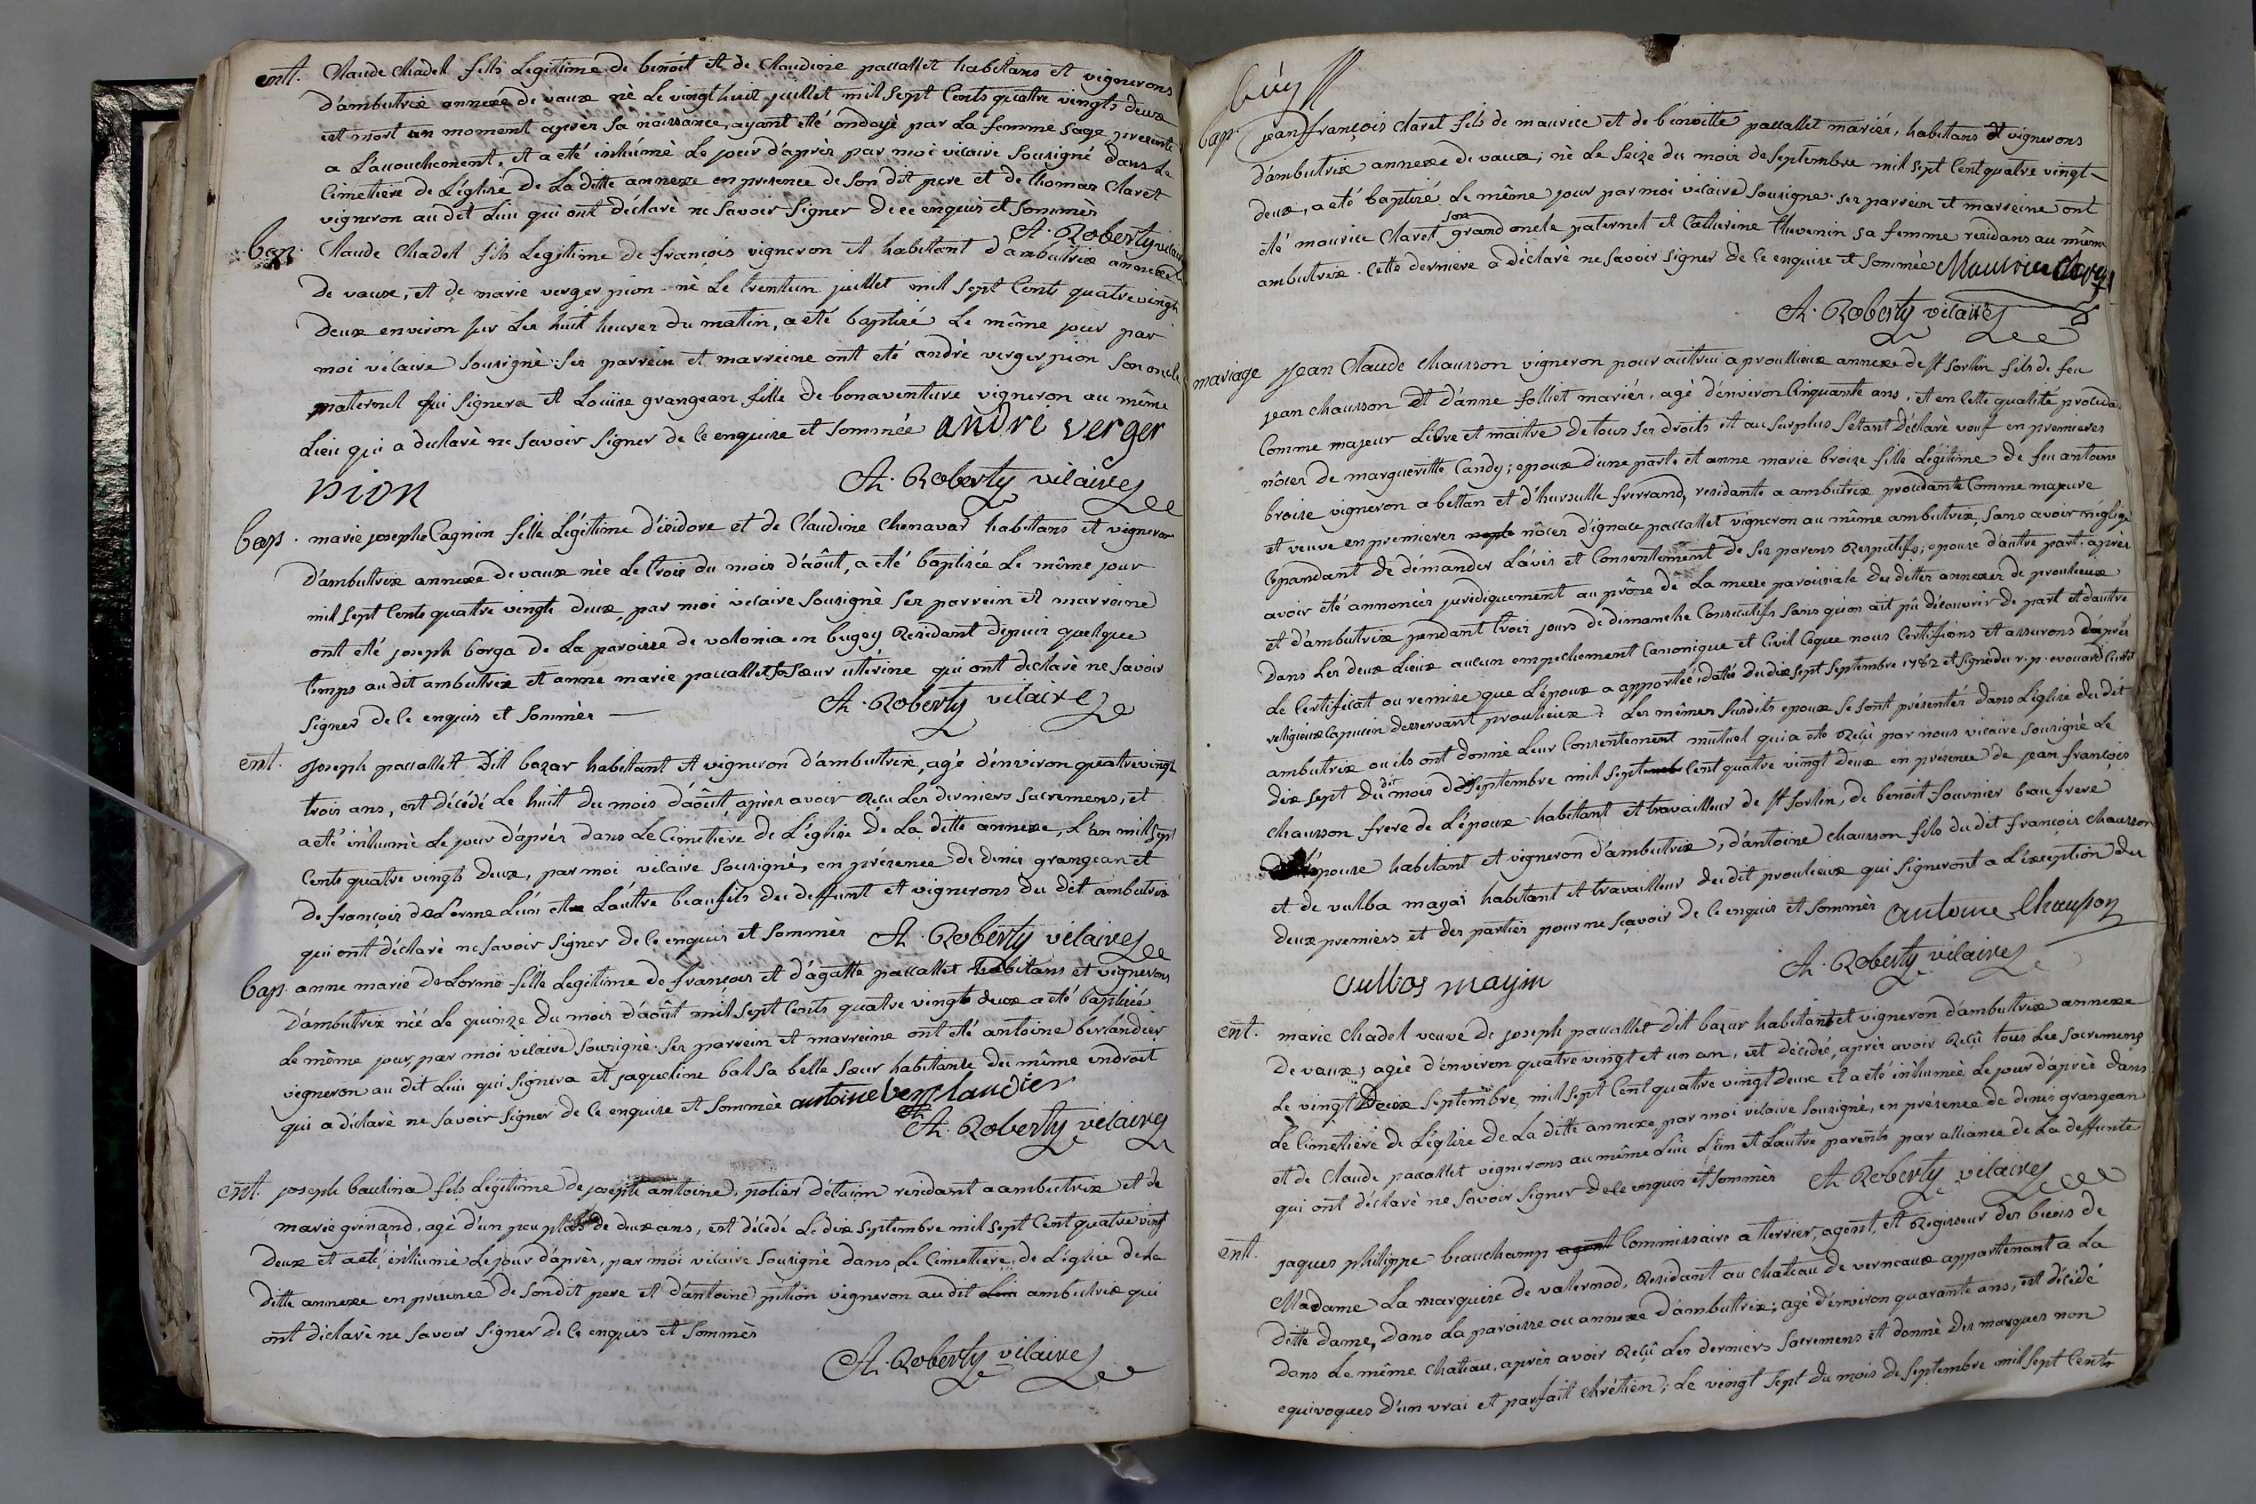 ent. Claude Chadel fils Legitimé de benoit et de Claudine paccallet habitans et vignerons
d'ambutrix annexe de vaux né Le vingt huit juillet mil sept Cents quattre vingts deux
est mort un moment après Sa naissance, ayant eté ondoyé par La femme Sage presente
a L'accouchement, et a eté inhumé Le jour d'après par moi vicaire Sousigné dans Le
Cimetiere de L'église de La ditte annexe en presence de Son dit pere et de thomas Claret
vigneron au dit Lieu qui ont déclaré ne Savoir Signer de ce enquis et Sommés
A. Roberty vicaire
bap. Claude Chadel fils Legitime de françois vigneron et habitant d'ambutrix annexe
de vaux, et de marie verger pion né Le trentun juillet mil Sept Cents quatre vingt
deux environ Sur Les huit heures du matin, a eté baptisé Le même jour par
moi vicaire Sousigné: Ses parrein et marreine ont eté andré verger pion Son oncle
maternel qui Signera et Louise grangean fille de bonaventure vigneron au même
Lieu qui a declaré ne Savoir Signer de Ce enquise et Sommée andré verger
pion A. Roberty vicaire
bap. marie josephe Cagnin fille Légitime d'isidore et de Claudine Chenavas habitans et vigneron
d'ambutrix annexe de vaux née Le trois du mois d'août, a eté baptisée Le même jour
mil Sept Cents quatre vingts deux, par moi vicaire Sousigné Ses parrein et marreine
ont eté joseph borga de La paroisse de volonia en bugey Residant depuis quelque
temps au dit ambutrix et anne marie paccallet Sa Sœur utérine qui ont declaré ne Savoir
Signer de Ce enquis et Sommés A. Roberty vicaire
ent. joseph paccallet dit bazar habitant et vigneron d'ambutrix, agé d'environ quatre vingt
trois ans, est décédé Le huit du mois d'août, après avoir Reçu Les derniers Sacremens, et
a eté inhumé Le jour d'après dans Le Cimetiere de L'église de La ditte annexe, L'an mil Sept
Cents quatre vingts deux, par moi vicaire Sousigné, en présence de denis grangean et
de françois deLorme L'un et L'autre beaufils du deffunt et vignerons du dit ambutrix
qui ont déclaré ne Savoir Signer de Ce enquis et Sommés A. Roberty vicaire
bap. anne marie deLorme fille Legitime de françois et d'agatte paccallet habitans et vignerons
d'ambutrix née Le quinze du mois d'août mil Sept Cents quatre vingts deux a eté baptisée
Le même jour, par moi vicaire Sousigné. Ses parrein et marreine ont eté antoine berlandier
vigneron au dit Lieu qui Signera et jaqueline bal Sa belle Sœur habitante du même endroit
qui a déclaré ne Savoir Signer de Ce enquise et Sommée antoine berlandier
A. Roberty vicaire
ent. joseph bautina fils Légitime de joseph antoine, potier d'étaim residant a ambutrix et de
marie grinand, agé d'un peu plus de deux ans, est décédé Le dix Septembre mil Sept Cent quatre vingt
deux et a eté inhumé Le jour d'après, par moi vicaire Sousigné dans Le Cimettiere de L'église de La
ditte annexe en présence de Son dit pere et d'antoine pition vigneron au dit ambutrix qui
ont déclaré ne Savoir Signer de Ce enquis et Sommés
A. Roberty vicaire
bap. jean françois Claret fils de maurice et de benoitte paccallet mariés, habitans et vignerons
d'ambutrix annexe de vaux; né Le Seize du mois de Septembre mil Sept Cent quatre vingt-
deux, a eté baptisé Le même jour par moi vicaire Sousigné. Ses parrein et marreine ont
eté maurice Claret Son grand oncle paternel et Catherine thevenin Sa femme residans au même
ambutrix. Cette derniere a déclaré ne Savoir Signer de Ce enquise et Sommée Maurice Claret
A. Roberty vicaire
mariage jean Claude Chausson vigneron pour autrui a proullieux annexe de St Sorlin fils de feu
jean Chausson et d'anne folliet mariés, agé d'environ Cinquante ans, et en Cette qualité procedant
Comme majeur Libre et maitre de tous Ses droits et au Surplus S'étant déclaré veuf en premieres
nôces de margueritte Candy; epoux d'une part. et anne marie broise fille Légitime de feu antoine
broise vigneron a bettan et d'hursulle ferrand, residante a ambutrix procedante Comme majeure
et veuve en premieres nôces d'ignace paccallet vigneron au même ambutrix, Sans avoir négligé
Cependant de démander L'avis et Consentement de Ses parens Respectifs; epouse d'autre part. après
avoir eté annoncés juridiquement au prône de La messe paroissiale des dittes annexes de proulieux
et d'ambutrix pendant trois jours de dimanche Consecutifs Sans qu'on ait pû découvrir de part et d'autre
dans Les deux Lieux aucun empechement Canonique et Civil Ceque nous Certifions et assurons d'après
Le Certificat ou remise que L'époux a apportée datée du dix Sept Septembre 1782 et Signé du r. p. evouard
religieux Capucin desservant proulieux. Les mêmes Susdits epoux Se Sont présentés dans L'église du dit
ambutrix ou ils ont donné Leur Consentement mutuel qui a eté Reçu par nous vicaire Sousigné Le
dix Sept du dit mois de Septembre mil Sept Cent quatre vingt deux en présence de jean françois
Chausson frere de L'époux habitant et travailleur de St Sorlin, de benoit fournier beau frere
de L'épouse habitant et vigneron d'ambutrix, d'antoine Chausson fils du dit françois Chausson
et de vulba magai habitant et travailleur du dit proulieux qui Signeront a L'exception des
deux premiers et des parties pour ne Sçavoir de Ce enquis et Sommés antoine Chausson
A. Roberty vicaire
vulbas mayin
ent. marie Chadel veuve de joseph paccallet dit bazar habitant et vigneron d'ambutrix annexe
de vaux; agée d'environ quatre vingt et un an, est décédée, après avoir Reçu tous Les Sacremens
Le vingt deux Septembre, mil Sept Cent quatre vingt deux et a eté inhumée Le jour d'après dans
Le Cimetiere de L'église de La ditte annexe par moi vicaire Sousigné, en présence de denis grangean
et de Claude paccallet vignerons au même Lieu L'un et L'autre parents par alliance de La deffunte
qui ont déclaré ne Savoir Signer de Ce enquis et Sommés A. Roberty vicaire
ent. jaques philippe beauchamp agent Commissaire a terrier, agent, et Regisseur des biens de
Madame La marquise de vatternod, Residant au Chateau de verneaux appartenant a La
ditte dame, dans La paroisse ou annexe d'ambutrix; agé d'environ quarante ans, est décédé
dans Le même Chateau, après avoir Reçû Les derniers Sacremens et donné des marques non
equivoques d'un vrai et parfait Chrétien; Le vingt Sept du mois de Septembre mil Sept Cents